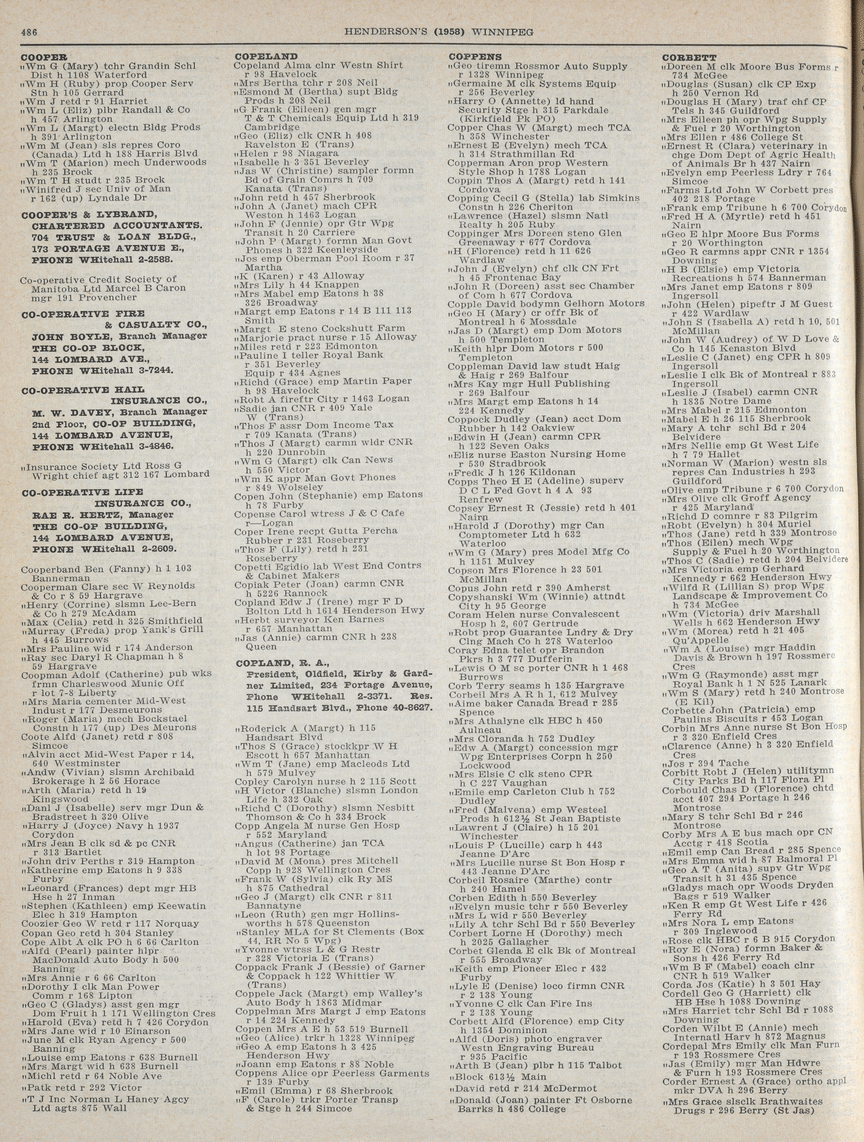 486
HENDERSON'S (1958) WINNIPEG
COOPER
"Wm G (Mary) tchr Grandin Schl
Dist h 1108 Waterford
"Wm H (Ruby) prop Cooper Serv
Stn h 105 Gerrard
"Wm J retd r 91 Harriet
"Wm L (Eliz) plbr Randall & Co
h 457 Arlington
"Wm L (Margt) electn Bldg Prods
h 391 Arlington
"Wm M (Jean) sls repres Coro
(Canada) Ltd h 188 Harris Blvd
"Wm T (Marion) mech Underwoods
h 235 Brock
"Wm T H studt r 235 Brock
"Winifred J sec Univ of Man
r 162 (up) Lyndale Dr
COOPER'S & LYBRAND,
CHARTERED ACCOUNTANTS.
704 TRUST & LOAN BLDG.,
173 PORTAGE AVENUE E.,
PHONE WHitehall 2-2588.
Co-operative Credit Society of
Manitoba Ltd Marcel B Caron
mgr 191 Provencher
CO-OPERATIVE FIRE
& CASUALTY CO.,
JOHN BOYLE, Branch Manager
THE CO-OP BLOCK,
144 LOMBARD AVE.,
PHONE WHitehall 3-7244.
CO-OPERATIVE HAIL
INSURANCE CO.,
M. W. DAVEY, Branch Manager
2nd Floor, CO-OP BUILDING,
144 LOMBARD AVENUE,
PHONE WHitehall 3-4846.
"Insurance Society Ltd Ross G
Wright chief agt 312 167 Lombard
CO-OPERATIVE LIFE
INSURANCE CO.,
RAE R. HERTZ, Manager
THE CO-OP BUILDING,
144 LOMBARD AVENUE,
PHONE WHitehall 2-2609.
Cooperband Ben (Fanny) h 1 103
Bannerman
Cooperman Clare sec W Reynolds
& Co r 8 59 Hargrave
"Henry (Corrine) slsmn Lee-Bern
& Co h 279 McAdam
"Max (Celia) retd h 325 Smithfield
"Murray (Freda) prop Yank's Grill
h 445 Burrows
"Mrs Pauline wid r 174 Anderson
"Ray sec Daryl R Chapman h 8
59 Hargrave
Coopman Adolf (Catherine) pub wks
frmn Charleswood Munic Off
r lot 7-8 Liberty
"Mrs Maria cementer Mid-West
Indust r 177 Desmeurons
"Roger (Maria) mech Bockstael
Constn h 177 (up) Des Meurons
Coote Alfd (Janet) retd r 808
Simcoe
"Alvin acct Mid-West Paper r 14,
640 Westminster
"Andw (Vivian) slsmn Archibald
Brokerage h 2 56 Horace
"Arth (Maria) retd h 19
Kingswood
"Danl J (Isabelle) serv mgr Dun &
Bradstreet h 320 Olive
"Harry J (Joyce) Navy h 1937
Corydon
"Mrs Jean B clk sd & pc CNR
r 313 Bartlet
"John driv Perths r 319 Hampton
"Katherine emp Eatons h 9 338
Furby
"Leonard (Frances) dept mgr HB
Hse h 27 Inman
"Stephen (Kathleen) emp Keewatin
Elec h 319 Hampton
Coozier Geo W retd r 117 Norquay
Copan Geo retd h 304 Stanley
Cope Albt A clk PO h 6 66 Carlton
"Alfd (Pearl) painter hlpr
MacDonald Auto Body h 500
Banning
"Mrs Annie r 6 66 Carlton
"Dorothy I clk Man Power
Comm r 168 Lipton
"Geo C (Gladys) asst gen mgr
Dom Fruit h 1 171 Wellington Cres
"Harold (Eva) retd h 7 426 Corydon
"Mrs Jane wid r 10 Einarson
"June M clk Ryan Agency r 500
Banning
"Louise emp Eatons r 638 Burnell
"Mrs Margt wid h 638 Burnell
"Michl retd r 64 Noble Ave
"Patk retd r 292 Victor
"T J Inc Norman L Haney Agcy
Ltd agts 875 Wall
COPELAND
Copeland Alma clnr Westn Shirt
r 98 Havelock
"Mrs Bertha tchr r 208 Neil
"Esmond M (Bertha) supt Bldg
Prods h 208 Neil
"G Frank (Eileen) gen mgr
T & T Chemicals Equip Ltd h 319
Cambridge
"Geo (Eliz) clk CNR h 408
Ravelston E (Trans)
"Helen r 98 Niagara
"Isabelle h 3 351 Beverley
"Jas W (Christine) sampler formn
Bd of Grain Comrs h 709
Kanata (Trans)
"John retd h 457 Sherbrook
"John A (Janet) mach CPR
Weston h 1463 Logan
"John F (Jennie) opr Gtr Wpg
Transit h 20 Carriere
"John P (Margt) formn Man Govt
Phones h 322 Keenleyside
"Jos emp Oberman Pool Room r 37
Martha
"K (Karen) r 43 Alloway
"Mrs Lily h 44 Knappen
"Mrs Mabel emp Eatons h 38
326 Broadway
"Margt emp Eatons r 14 B 111 113
Smith
"Margt E steno Cockshutt Farm
"Marjorie pract nurse r 15 Alloway
"Miles retd r 223 Edmonton
"Pauline I teller Royal Bank
r 351 Beverley
Equip r 434 Agnes
"Richd (Grace) emp Martin Paper
h 98 Havelock
"Robt A fireftr City r 1463 Logan
"Sadie jan CNR r 409 Yale
W (Trans)
"Thos F assr Dom Income Tax
r 709 Kanata (Trans)
"Thos J (Margt) carmn wldr CNR
h 220 Dunrobin
"Wm G (Margt) clk Can News
h 550 Victor
"Wm K appr Man Govt Phones
r 849 Wolseley
Copen John (Stephanie) emp Eatons
h 78 Furby
Copense Carol wtress J & C Cafe
r—Logan
Coper Irene recpt Gutta Percha
Rubber r 231 Roseberry
"Thos F (Lily) retd h 231
Roseberry
Copetti Egidio lab West End Contrs
& Cabinet Makers
Copiak Peter (Joan) carmn CNR
h 5226 Rannock
Copland Edw J (Irene) mgr F D
Bolton Ltd h 1614 Henderson Hwy
"Herbt surveyor Ken Barnes
r 657 Manhattan
"Jas (Annie) carmn CNR h 238
Queen
COPLAND, R. A.,
President, Oldfield, Kirby & Gard-
ner Limited, 234 Portage Avenue,
Phone WHitehall 2-3371. Res.
115 Handsart Blvd., Phone 40-8627.
"Roderick A (Margt) h 115
Handsart Blvd
"Thos S (Grace) stockkpr W H
Escott h 657 Manhattan
"Wm T (Jane) emp Macleods Ltd
h 579 Mulvey
Copley Carolyn nurse h 2 115 Scott
"H Victor (Blanche) slsmn London
Life h 332 Oak
"Richd C (Dorothy) slsmn Nesbitt
Thomson & Co h 334 Brock
Copp Angela M nurse Gen Hosp
r 552 Maryland
"Angus (Catherine) jan TCA
h lot 98 Portage
"David M (Mona) pres Mitchell
Copp h 928 Wellington Cres
"Frank W (Sylvia) clk Ry MS
h 875 Cathedral
"Geo J (Margt) clk CNR r 811
Bannatyne
"Leon (Ruth) gen mgr Hollins-
worths h 578 Queenston
"Stanley MLA for St Clements (Box
44, RR No 5 Wpg)
"Yvonne wtress L & G Restr
r 328 Victoria E (Trans)
Coppack Frank J (Bessie) of Garner
& Coppack h 122 Whittier W
(Trans)
Coppele Jack (Margt) emp Walley's
Auto Body h 1863 Midmar
Coppelman Mrs Margt J emp Eatons
r 14 224 Kennedy
Coppen Mrs A E h 53 519 Burnell
"Geo (Alice) trkr h 1328 Winnipeg
"Geo A emp Eatons h 3 425
Henderson Hwy
"Joann emp Eatons r 88 Noble
Coppens Alice opr Peerless Garments
r 139 Furby
"Emil (Emma) r 68 Sherbrook
"F (Carole) trkr Porter Transp
& Stge h 244 Simcoe
COPPENS
"Geo tiremn Rossmor Auto Supply
r 1328 Winnipeg
"Germaine M clk Systems Equip
r 256 Beverley
"Harry O (Annette) ld hand
Security Stge h 315 Parkdale
(Kirkfield Pk PO)
Copper Chas W (Margt) mech TCA
h 358 Winchester
"Ernest E (Evelyn) mech TCA
h 314 Strathmillan Rd
Copperman Aron prop Western
Style Shop h 1788 Logan
Coppin Thos A (Margt) retd h 141
Cordova
Copping Cecil G (Stella) lab Simkins
Constn h 226 Cheriton
"Lawrence (Hazel) slsmn Natl
Realty h 205 Ruby
Coppinger Mrs Doreen steno Glen
Greenaway r 677 Cordova
"H (Florence) retd h 11 626
Wardlaw
"John J (Evelyn) chf clk CN Frt
h 45 Frontenac Bay
"John R (Doreen) asst sec Chamber
of Com h 677 Cordova
Copple David bodymn Gelhorn Motors
"Geo H (Mary) cr offr Bk of
Montreal h 6 Mossdale
"Jas D (Margt) emp Dom Motors
h 500 Templeton
"Keith hlpr Dom Motors r 500
Templeton
Coppleman David law studt Haig
& Haig r 269 Balfour
"Mrs Kay mgr Hull Publishing
r 269 Balfour
"Mrs Margt emp Eatons h 14
224 Kennedy
Coppock Dudley (Jean) acct Dom
Rubber h 142 Oakview
"Edwin H (Jean) carmn CPR
h 122 Seven Oaks
"Eliz nurse Easton Nursing Home
r 530 Stradbrook
"Fredk J h 126 Kildonan
Copps Theo H E (Adeline) superv
D C L Fed Govt h 4 A 93
Renfrew
Copsey Ernest R (Jessie) retd h 401
Nairn
"Harold J (Dorothy) mgr Can
Comptometer Ltd h 632
Waterloo
"Wm G (Mary) pres Model Mfg Co
h 1151 Mulvey
Copson Mrs Florence h 23 501
McMillan
Copus John retd r 390 Amherst
Copyshanski Wm (Winnie) attndt
City h 95 George
Coram Helen nurse Convalescent
Hosp h 2, 607 Gertrude
"Robt prop Guarantee Lndry & Dry
Clng Mach Co h 278 Waterloo
Coray Edna telet opr Brandon
Pkrs h 3 777 Dufferin
"Lewis O M sc porter CNR h 1 468
Burrows
Corb Terry seams h 135 Hargrave
Corbeil Mrs A R h 1, 612 Mulvey
"Aime baker Canada Bread r 285
Spence
"Mrs Athalyne clk HBC h 450
Aulneau
"Mrs Cloranda h 752 Dudley
"Edw A (Margt) concession mgr
Wpg Enterprises Corpn h 250
Lockwood
"Mrs Elsie C clk steno CPR
h C 227 Vaughan
"Emile emp Carleton Club h 752
Dudley
"Fred (Malvena) emp Westeel
Prods h 612½ St Jean Baptiste
"Lawrent J (Claire) h 15 201
Winchester
"Louis P (Lucille) carp h 443
Jeanne D'Arc
"Mrs Lucille nurse St Bon Hosp r
443 Jeanne D'Arc
Corbeil Rosaire (Marthe) contr
h 240 Hamel
Corben Edith h 550 Beverley
"Evelyn music tchr r 550 Beverley
"Mrs L wid r 550 Beverley
"Lily A tchr Schl Bd r 550 Beverley
Corbert Lorne H (Dorothy) mech
h 2025 Gallagher
Corbet Glenda E clk Bk of Montreal
r 555 Broadway
"Keith emp Pioneer Elec r 432
Furby
"Lyle E (Denise) loco firmn CNR
r 2 138 Young
"Yvonne C clk Can Fire Ins
r 2 138 Young
Corbett Alfd (Florence) emp City
h 1354 Dominion
"Alfd (Doris) photo engraver
Westn Engraving Bureau
r 935 Pacific
"Arth B (Jean) plbr h 115 Talbot
"Block 613½ Main
"David retd r 214 McDermot
"Donald (Joan) painter Ft Osborne
Barrks h 486 College
CORBETT
"Doreen M clk Moore Bus Forms r
734 McGee
"Douglas (Susan) clk CP Exp
h 250 Vernon Rd
"Douglas H (Mary) traf chf CP
Tels h 345 Guildford
"Mrs Eileen ph opr Wpg Supply
& Fuel r 20 Worthington
"Mrs Ellen r 486 College St
"Ernest R (Clara) veterinary in
chge Dom Dept of Agric Health
of Animals Br h 437 Nairn
"Evelyn emp Peerless Ldry r 764
Simcoe
"Farms Ltd John W Corbett pres
402 218 Portage
"Frank emp Tribune h 6 700 Corydon
"Fred H A (Myrtle) retd h 451
Nairn
"Geo E hlpr Moore Bus Forms
r 20 Worthington
"Geo R carmns appr CNR r 1354
Downing
"H B (Elsie) emp Victoria
Recreations h 574 Bannerman
"Mrs Janet emp Eatons r 809
Ingersoll
"John (Helen) pipeftr J M Guest
r 422 Wardlaw
"John S (Isabella A) retd h 10, 501
McMillan
"John W (Audrey) of W D Love &
Co h 145 Kenaston Blvd
"Leslie C (Janet) eng CPR h 809
Ingersoll
"Leslie I clk Bk of Montreal r 883
Ingersoll
"Leslie J (Isabel) carmn CNR
h 1835 Notre Dame
"Mrs Mabel r 215 Edmonton
"Mabel E h 26 115 Sherbrook
"Mary A tchr schl Bd r 204
Belvidere
"Mrs Nellie emp Gt West Life
h 7 79 Hallet
"Norman W (Marion) westn sls
repres Can Industries h 293
Guildford
"Olive emp Tribune r 6 700 Corydon
"Mrs Olive clk Groff Agency
r 425 Maryland
"Richd D comnre r 83 Pilgrim
"Robt (Evelyn) h 304 Muriel
"Thos (Jane) retd h 339 Montrose
"Thos (Eileen) mech Wpg
Supply & Fuel h 20 Worthington
"Thos C (Sadie) retd h 204 Belvidere
"Mrs Victoria emp Gerhard
Kennedy r 662 Henderson Hwy
"Wilfd R (Lillian S) prop Wpg
Landscape & Improvement Co
h 734 McGee
"Wm (Victoria) driv Marshall
Wells h 662 Henderson Hwy
"Wm (Morea) retd h 21 405
Qu'Appelle
"Wm A (Louise) mgr Haddin
Davis & Brown h 197 Rossmere
Cres
"Wm G (Raymonde) asst mgr
Royal Bank h 1 N 525 Lanark
"Wm S (Mary) retd h 240 Montrose
(E Kil)
Corbette John (Patricia) emp
Paulins Biscuits r 453 Logan
Corbin Mrs Anne nurse St Bon Hosp
r 3 320 Enfield Cres
"Clarence (Anne) h 3 320 Enfield
Cres
"Jos r 394 Tache
Corbitt Robt J (Helen) utilitymn
City Parks Bd h 117 Flora Pl
Corbould Chas D (Florence) chtd
acct 407 294 Portage h 246
Montrose
"Mary S tchr Schl Bd r 246
Montrose
Corby Mrs A E bus mach opr CN
Acctg r 418 Scotia
"Emil emp Can Bread r 285 Spence
"Mrs Emma wid h 87 Balmoral Pl
"Geo A T (Anita) supv Gtr Wpg
Transit h 31 435 Spence
"Gladys mach opr Woods Dryden
Bags r 519 Walker
"Ken R emp Gt West Life r 426
Ferry Rd
"Mrs Nora L emp Eatons
r 309 Inglewood
"Rose clk HBC r 6 B 915 Corydon
"Roy E (Nora) formn Baker &
Sons h 426 Ferry Rd
"Wm B F (Mabel) coach clnr
CNR h 519 Walker
Corda Jos (Katie) h 3 501 Hay
Cordell Geo G (Harriett) clk
HB Hse h 1088 Downing
"Mrs Harriet tchr Schl Bd r 1088
Downing
Corden Wilbt E (Annie) mech
Internatl Harv h 872 Magnus
Cordepal Mrs Emily clk Man Furn
r 193 Rossmere Cres
"Jas (Emily) mgr Man Hdwre
& Furn h 193 Rossmere Cres
Corder Ernest A (Grace) ortho appl
mkr DVA h 296 Berry
"Mrs Grace slsclk Brathwaites
Drugs r 296 Berry (St Jas)